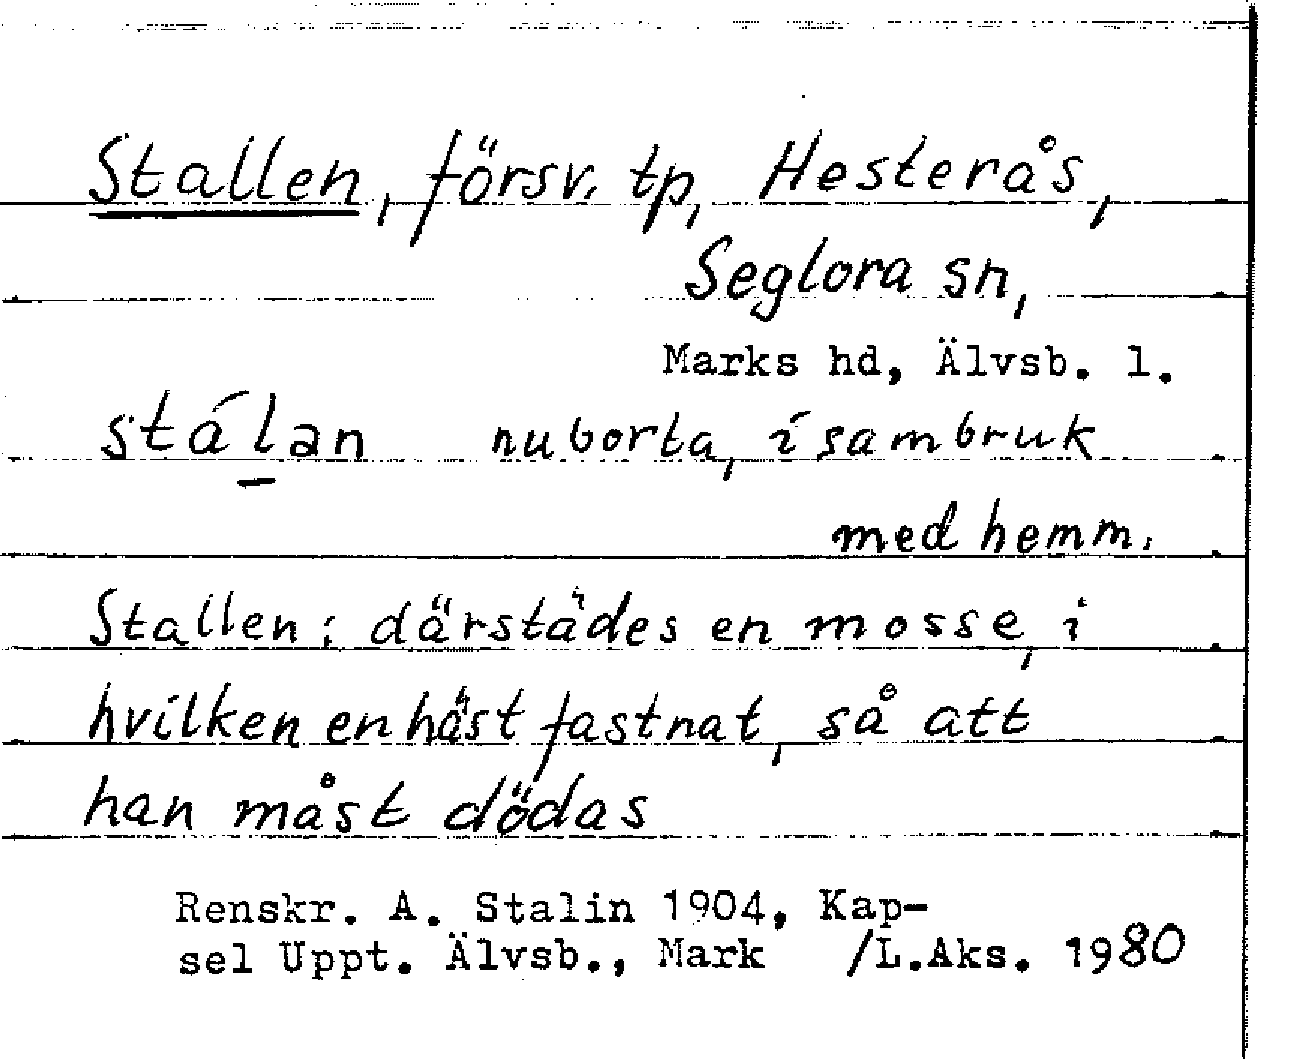 Stallen, försv. tp, Hesterås,
Seglora sn,
Marks hd, Älvsb. l.
stálan nuborta, i sambruk
med hemm.
Stallen: därstädes en mosse, i
hvilken en häst fastnat, så att
han måst dödas
Renskr. A. Stalin 1904, Kap-
sel Uppt. Älvsb., Mark /L.Aks. 1980